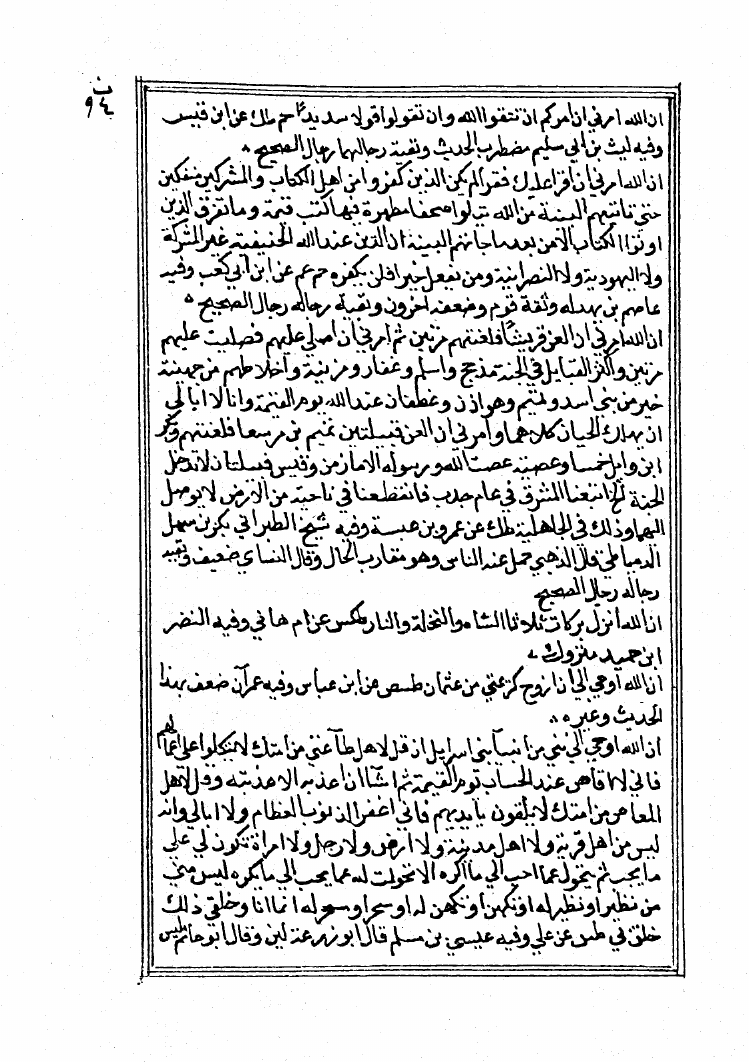 ب
٩٤
ان الله امرني ان امركم ان تتقوا الله وان تقولوا قولا سديدا حم طك عن ابن قيس
وفيه ليث بن ابي سليم مضطرب الحديث وبقية رجالهما رجال الصحيح
ان الله امرني ان اقرا عليك فقرا لم يكن الذين كفروا من اهل الكتاب والمشركين منفكين
حتى تاتيهم البينة من الله يتلوا صحفا مطهرة فيها كتب قيمة وما تفرق الذين
اوتوا الكتاب الا من بعد ما جاتهم البينة ان الدين عند الله الحنيفية غير المشركة
ولا اليهودية ولا النصرانية ومن يفعل خيرا فلن يكفره حم عم عن ابن ابي كعب وفيه
عاصم بن بهدله وثقة قوم وضعفه اخرون وبقية رجاله رجال الصحيح
ان الله امرني ان العن قريشا فلعنتهم مرتين ثم امرني ان اصلي عليهم فصليت عليهم
مرتين واكثر القبايل في الجنة مذحج واسلم وغفار ومزينة واخلاطهم من جهينة
خير من بني اسد وتميم وهوازن وغطفان عند الله يوم القيمة وانا لا ابالي
ان يهلك الحيان كلاهما وامرني ان العن قبيلتين تميم بن مر سبعا فلعنتهم وبكر
ابن وايل خمسا وعصية عصت الله ورسوله الا مازن وقيس قبيلتان لا تدخل
الجنة اتبعنا المشرق في عام جدب فانقطعنا في ناحية من الارض لا يوصل
اليهما وذلك في الجاهلية طك عن عمرو بن عبسة وفيه شيخ الطبراني بكر بن سهل
الدمياطي قال الذهبي حمل عنه الناس وهو مقارب الحال وقال النساي ضعيف وبقية
رجاله رجال الصحيح
ان الله انزل بركات ثلاثا الشاه والنخلة والنار طكس عن ام هاني وفيه النضر
ابن حميد متروك
ان الله اوحي الي ان ازوج كريمتي من عثمان طسص عن ابن عباس وفيه عمران ضعف بهذا
الحديث وغيره
ان الله اوحي الي نبي من انبيآ بني اسرايل ان قل لاهل طاعتي من امتك لا يتكلوا على اعمالهم
فاني لا اقاص عند الحساب يوم القيمة ثم اشآ ان اعذبه الا عذبته وقل لاهل
المعاصي من امتك لا يلقون بايديهم فاني اغفر الذنوب العظام ولا ابالي وانه
ليس من اهل قرية ولا اهل مدينة ولا ارض ولا رجل ولا امراة تكون لي علي
ما يحب ثم يتحول عما احب الي ما اكره الا تحولت له عما يحب الي ما يكره ليس مني
من تطير او تطير له او تكهن او تكهن له او سحر او سحر له انما انا وخلقي وكل
خلقي لي طس عن علي وفيه عيسي بن مسلم قال ابو زرعة لين وقال ابو حاتم ليس